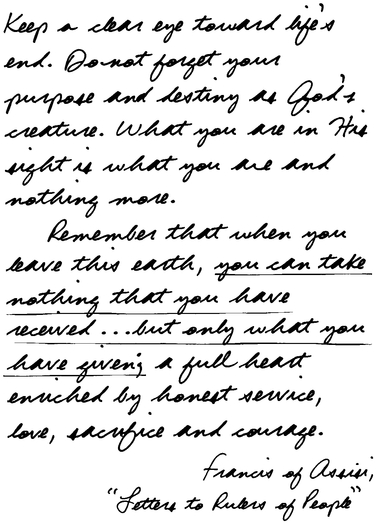 Keep a clear eye toward life's
end. Do not forget your
purpose and destiny as God's
creature. What you are in His
sight is what you are and
nothing more.
Remember that when you
leave this earth, you can take
nothing that you have
received...but only what you
have given; a full heart
enriched by honest service,
love, sacrifice and courage.
Francis of Assisi,
"Letters to Rulers of People"